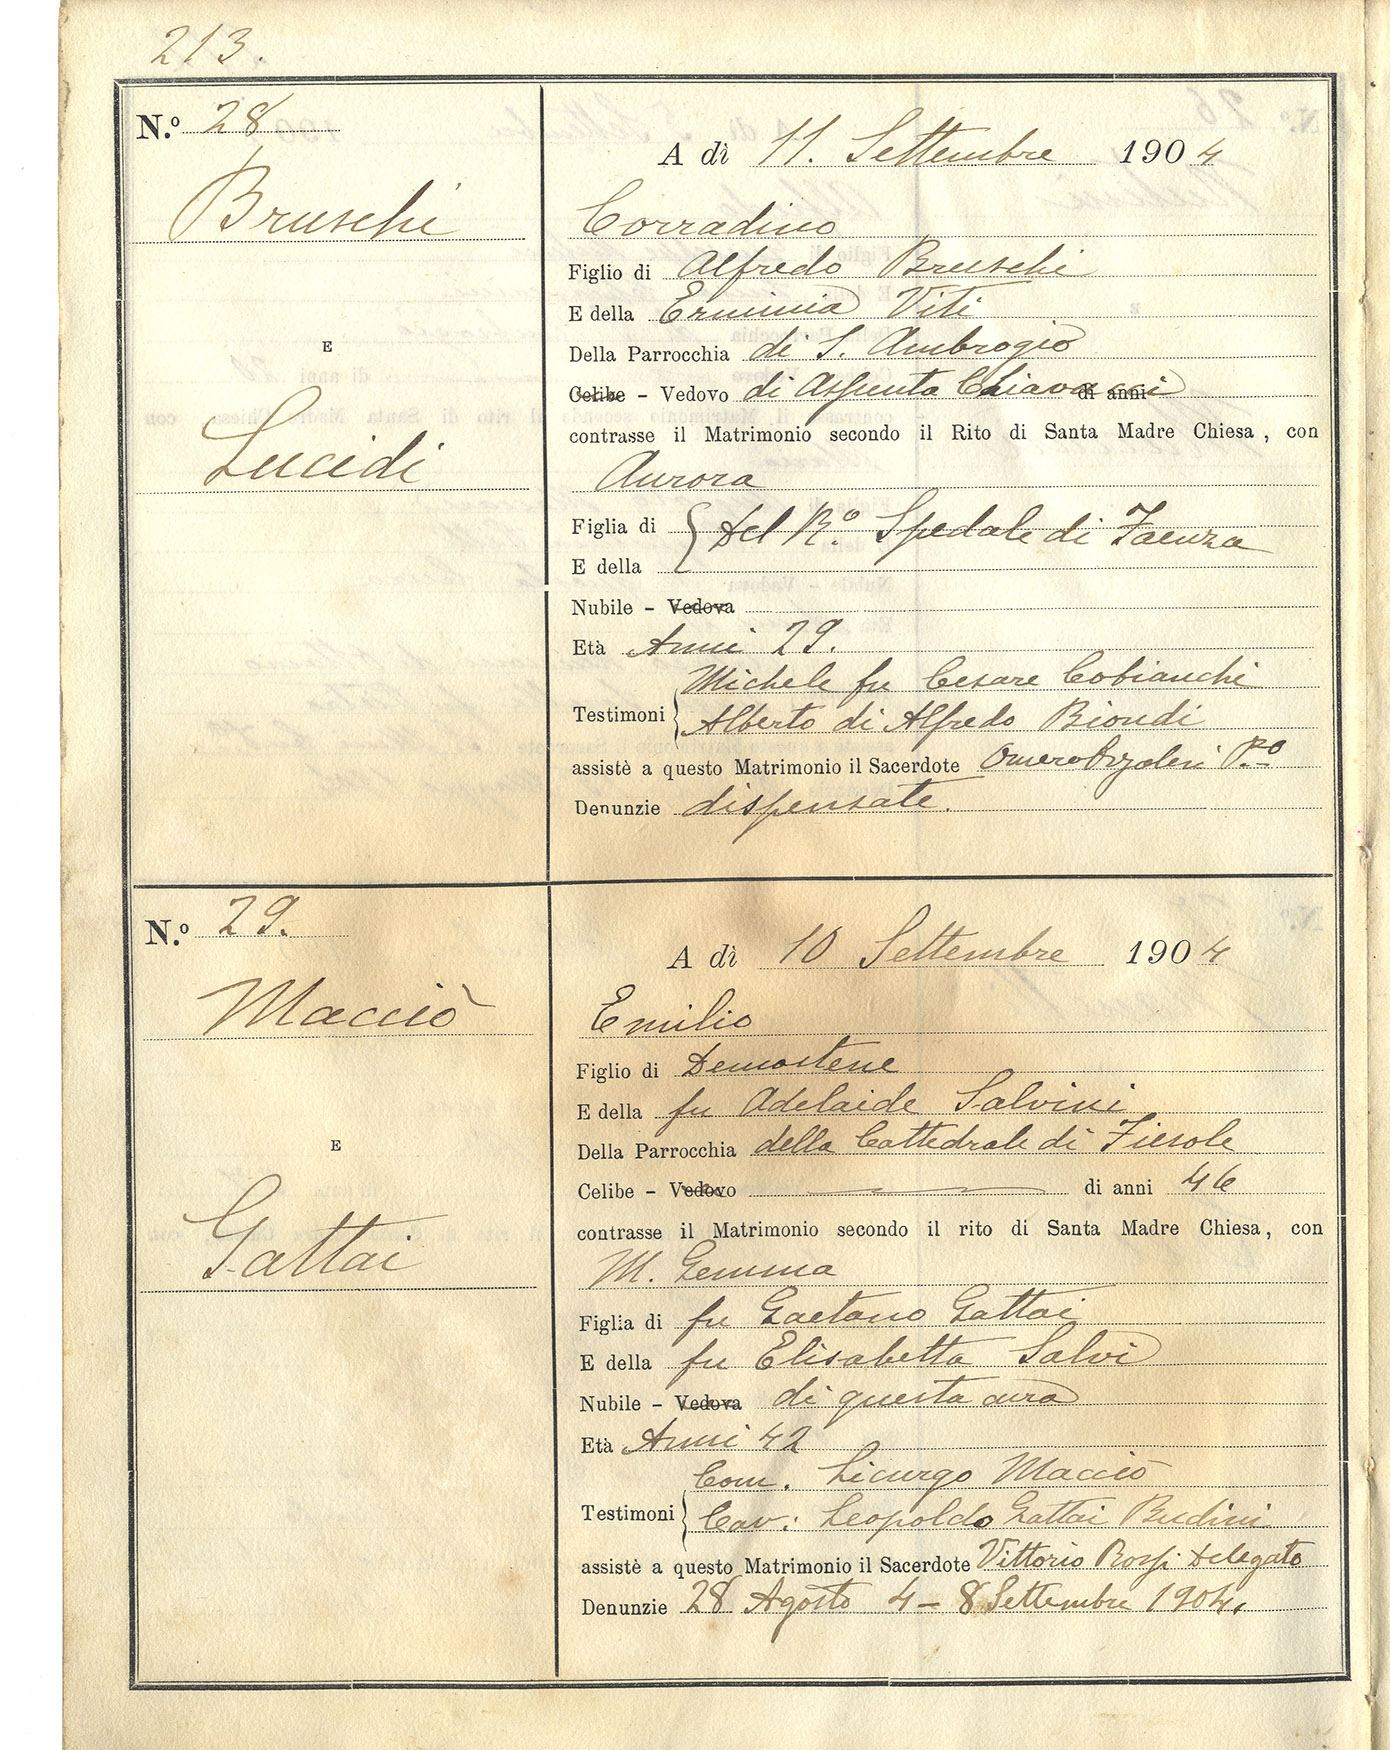 213.
N.º 28
A dì 11. Settembre 1904
Bruschi
E
Lucidi
Corradino
Figlio di Alfredo Bruschi
E della Erminia Viti
Della Parrocchia di S. Ambrogio
Celibe - Vedovo di Assunta Chiavacci di anni
contrasse il Matrimonio secondo il Rito di Santa Madre Chiesa, con
Aurora
Figlia di { Del R.º Spedale di Faenza
E della
Nubile - Vedova
Età Anni 29.
Michele fu Cesare Cobianchi
Testimoni { Alberto di Alfredo Biondi
assistè a questo Matrimonio il Sacerdote Omero P.º
Denunzie dispensate.
N.º 29.
A dì 10 Settembre 1904
Macciò
E
Gattai
Emilio
Figlio di Demostene
E della fu Adelaide Salvini
Della Parrocchia della Cattedrale di Fiesole
Celibe - Vedovo di anni 46
contrasse il Matrimonio secondo il rito di Santa Madre Chiesa, con
M. Gemma
Figlia di fu Gaetano Gattai
E della fu Elisabetta Salvi
Nubile - Vedova di questa cura
Età Anni 42
Com. Licurgo Macciò
Testimoni { Cav: Leopoldo Gattai Budini
assistè a questo Matrimonio il Sacerdote Vittorio Rossi Delegato
Denunzie 28 Agosto 4 - 8 Settembre 1904.